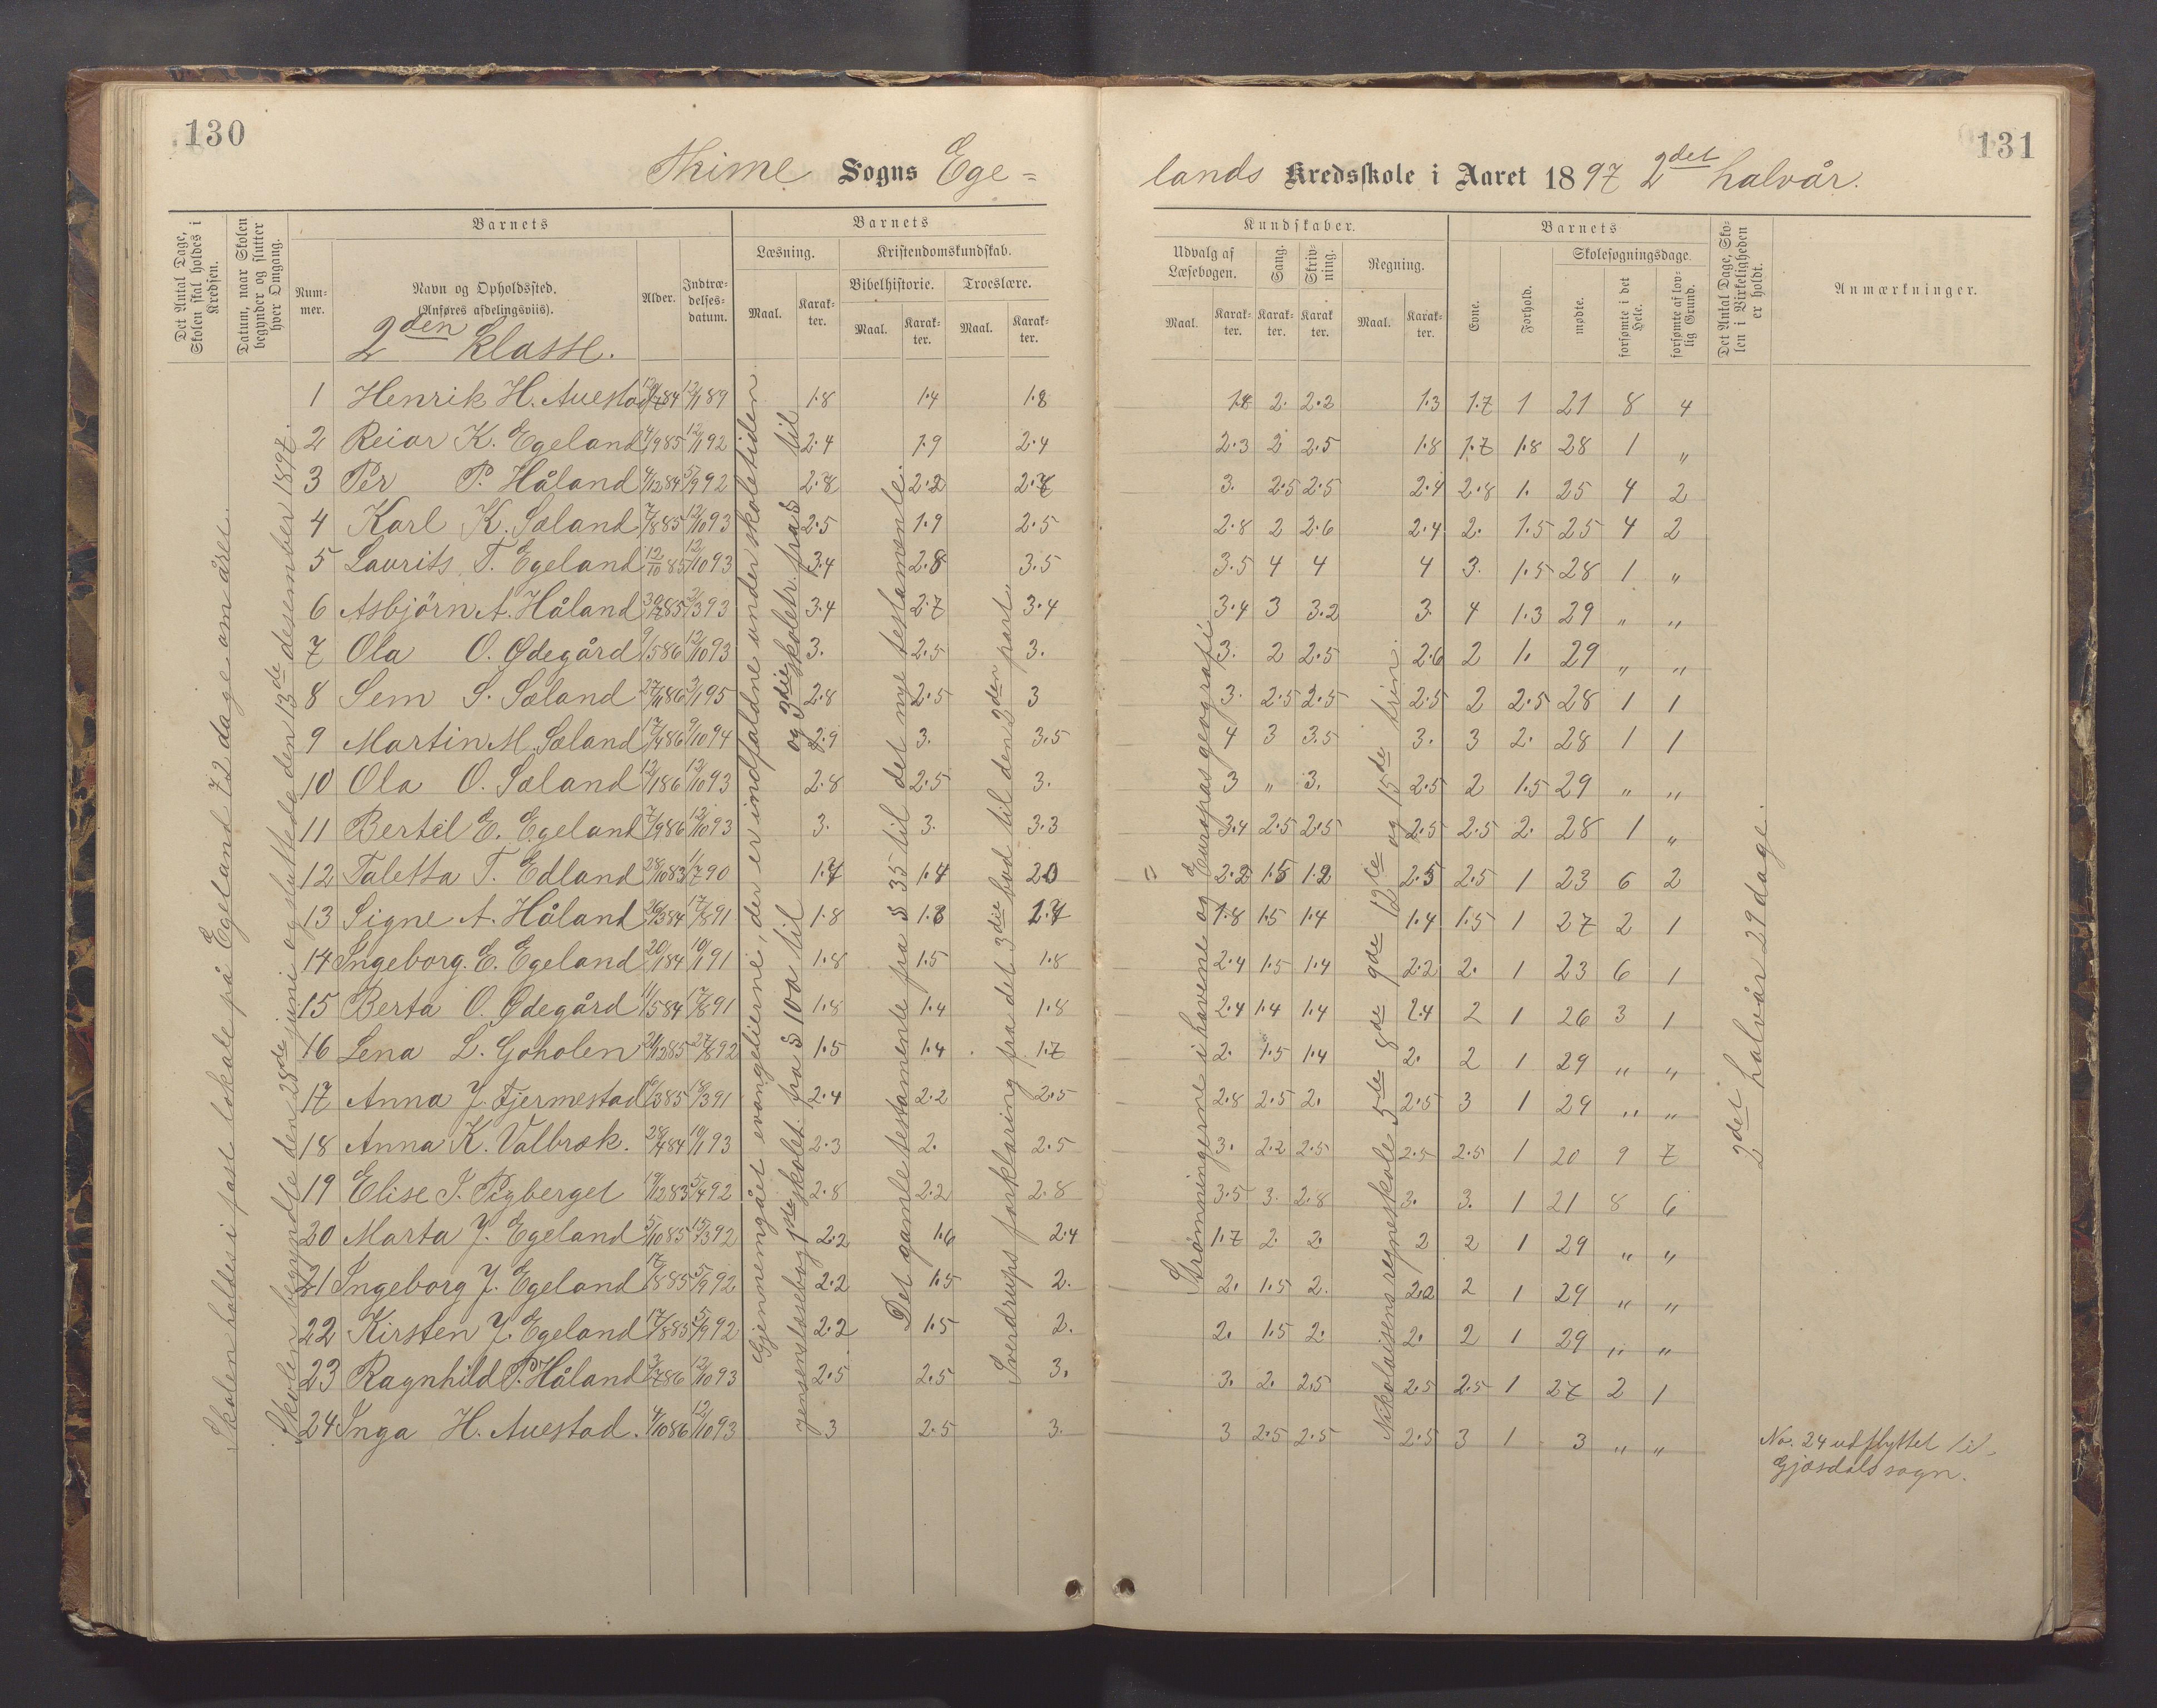 130
131
Thime Sogns Ege=
lands Kredsskole i Aaret 1897 2det halvår.
Det Antal Dage, Skolen skal holdes i Kredsen.
Datum, naar Skolen begynder og slutter hver Omgang.
Barnets
Nummer.
Navn og Opholdssted.
(Anføres afdelingsviis).
Alder.
Indtrædelsesdatum.
Barnets
Læsning.
Kristendomskundskab.
Bibelhistorie.
Troeslære.
Maal.
Karakter.
Maal.
Karakter.
Maal.
Karakter.
Kundskaber.
Udvalg af Læsebogen.
Sang.
Skrivning.
Regning.
Maal.
Karakter.
Karakter.
Karakter.
Maal.
Karakter.
Barnets
Evne.
Forhold.
Skolesøgningsdage.
mødte.
forsømte i det Hele.
forsømte af lovlig Grund.
Det Antal Dage, Skolen i Virkeligheden er holdt.
Anmærkninger.
2den Klasse.
Skolen holdes i fast lokale på Egeland 72 dage om året.
Skolen begyndte den 28de juni og sluttede den 13de desember 1897.
Gjennemgået evangelierne, der er indfaldne under skoletiden
Jensens læsebog 1ste skolet. fra § 100 til og 3die skoletr. fra § til
Det gamle testamente fra § 35 til det nye testamente.
Sverdrups forklaring fra det 3die bud til den 2den part.
Strømningerne i havene og Europas geografi.
Nikolaisens regneskole 5de 8de 9de 12te og 15de trin.
2det halvår 29 dage.
1 Henrik H. Auestad 12/1 89 1.8 1.4 1.8 1.8 2. 2.2 1.3 1.7 1 21 8 4
2 Reiar K. Egeland 4/9 85 12/1 92 2.4 1.9 2.4 2.3 2 2.5 1.8 1.7 1.8 28 1 „
3 Per P. Håland 4/12 84 5/9 92 2.8 2.2 2.7 3. 2.5 2.5 2.4 2.8 1. 25 4 2
4 Karl K. Sæland 7/8 85 12/10 93 2.5 1.9 2.5 2.8 2 2.6 2.4 2. 1.5 25 4 2
5 Laurits T. Egeland 12/10 85 12/10 93 3.4 2.8 3.5 3.5 4 4 4 3. 1.5 28 1 „
6 Asbjörn A. Håland 30/7 85 3/3 93 3.4 2.7 3.4 3.4 3 3.2 3. 4 1.3 29 „ „
7 Ola O. Ødegård 9/5 86 12/10 93 3. 2.5 3. 3. 2 2.5 2.6 2 1. 29 „ „
8 Sem S. Sæland 27/11 86 3/1 95 2.8 2.5 3 3. 2.5 2.5 2.5 2 2.5 28 1 1
9 Martin M. Sæland 17/4 86 9/10 94 2.9 3. 3.5 4 3 3.5 3. 3 2. 28 1 1
10 Ola O. Sæland 12/1 86 12/10 93 2.8 2.5 3. 3 „ 3. 2.5 2 1.5 29 „ „
11 Bertel E. Egeland 7/9 86 12/10 93 3. 3. 3.3 3.4 2.5 2.5 2.5 2.5 2. 28 1 „
12 Taletta T. Edland 28/10 83 1/7 90 1.7 1.4 2.0 2.2 1.5 1.2 2.5 2.5 1 23 6 2
13 Signe A. Håland 26/3 84 17/8 91 1.8 1.3 1.7 1.8 1.5 1.4 1.4 1.5 1 27 2 1
14 Ingeborg. E. Egeland 20/1 84 10/1 91 1.8 1.5 1.8 2.4 1.5 1.4 2.2 2. 1 23 6 1
15 Berta O. Ødegård 11/5 84 17/8 91 1.8 1.4 1.8 2.4 1.4 1.4 2.4 2 1 26 3 1
16 Lena L. Goholen 21/12 85 27/8 92 1.5 1.4 1.7 2. 1.5 1.4 2. 2 1 29 „ „
17 Anna J. Fjermestad 6/3 85 18/3 91 2.4 2.2 2.5 2.8 2.5 2. 2.5 3 1 29 „ „
18 Anna K. Valbræk. 28/4 84 10/1 93 2.3 2. 2.5 3. 2.2 2.5 2.5 2.5 1 20 9 7
19 Elise J. Pigberget 19/12 83 5/4 92 2.8 2.2 2.8 3.5 3. 2.8 3. 3. 1 21 8 6
20 Marta J. Egeland 5/10 85 15/3 92 2.2 1.6 2.4 1.7 2. 2. 2 2 1 29 „ „
21 Ingeborg J. Egeland 17/8 85 5/9 92 2.2 1.5 2. 2. 1.5 2. 2.2 2 1 29 „ „
22 Kirsten J. Egeland 17/8 85 5/9 92 2.2 1.5 2. 2. 1.5 2. 2. 2 1 29 „ „
23 Ragnhild P. Håland 3/7 86 12/10 93 2.5 2.5 3. 3. 2. 2.5 2.5 2.5 1 27 2 1
24 Inga H. Auestad. 4/10 86 12/10 93 3 2.5 3. 3 2.5 2.5 2.5 3 1 3 „ „
No. 24 udflyttet til
Gjæsdals sogn.